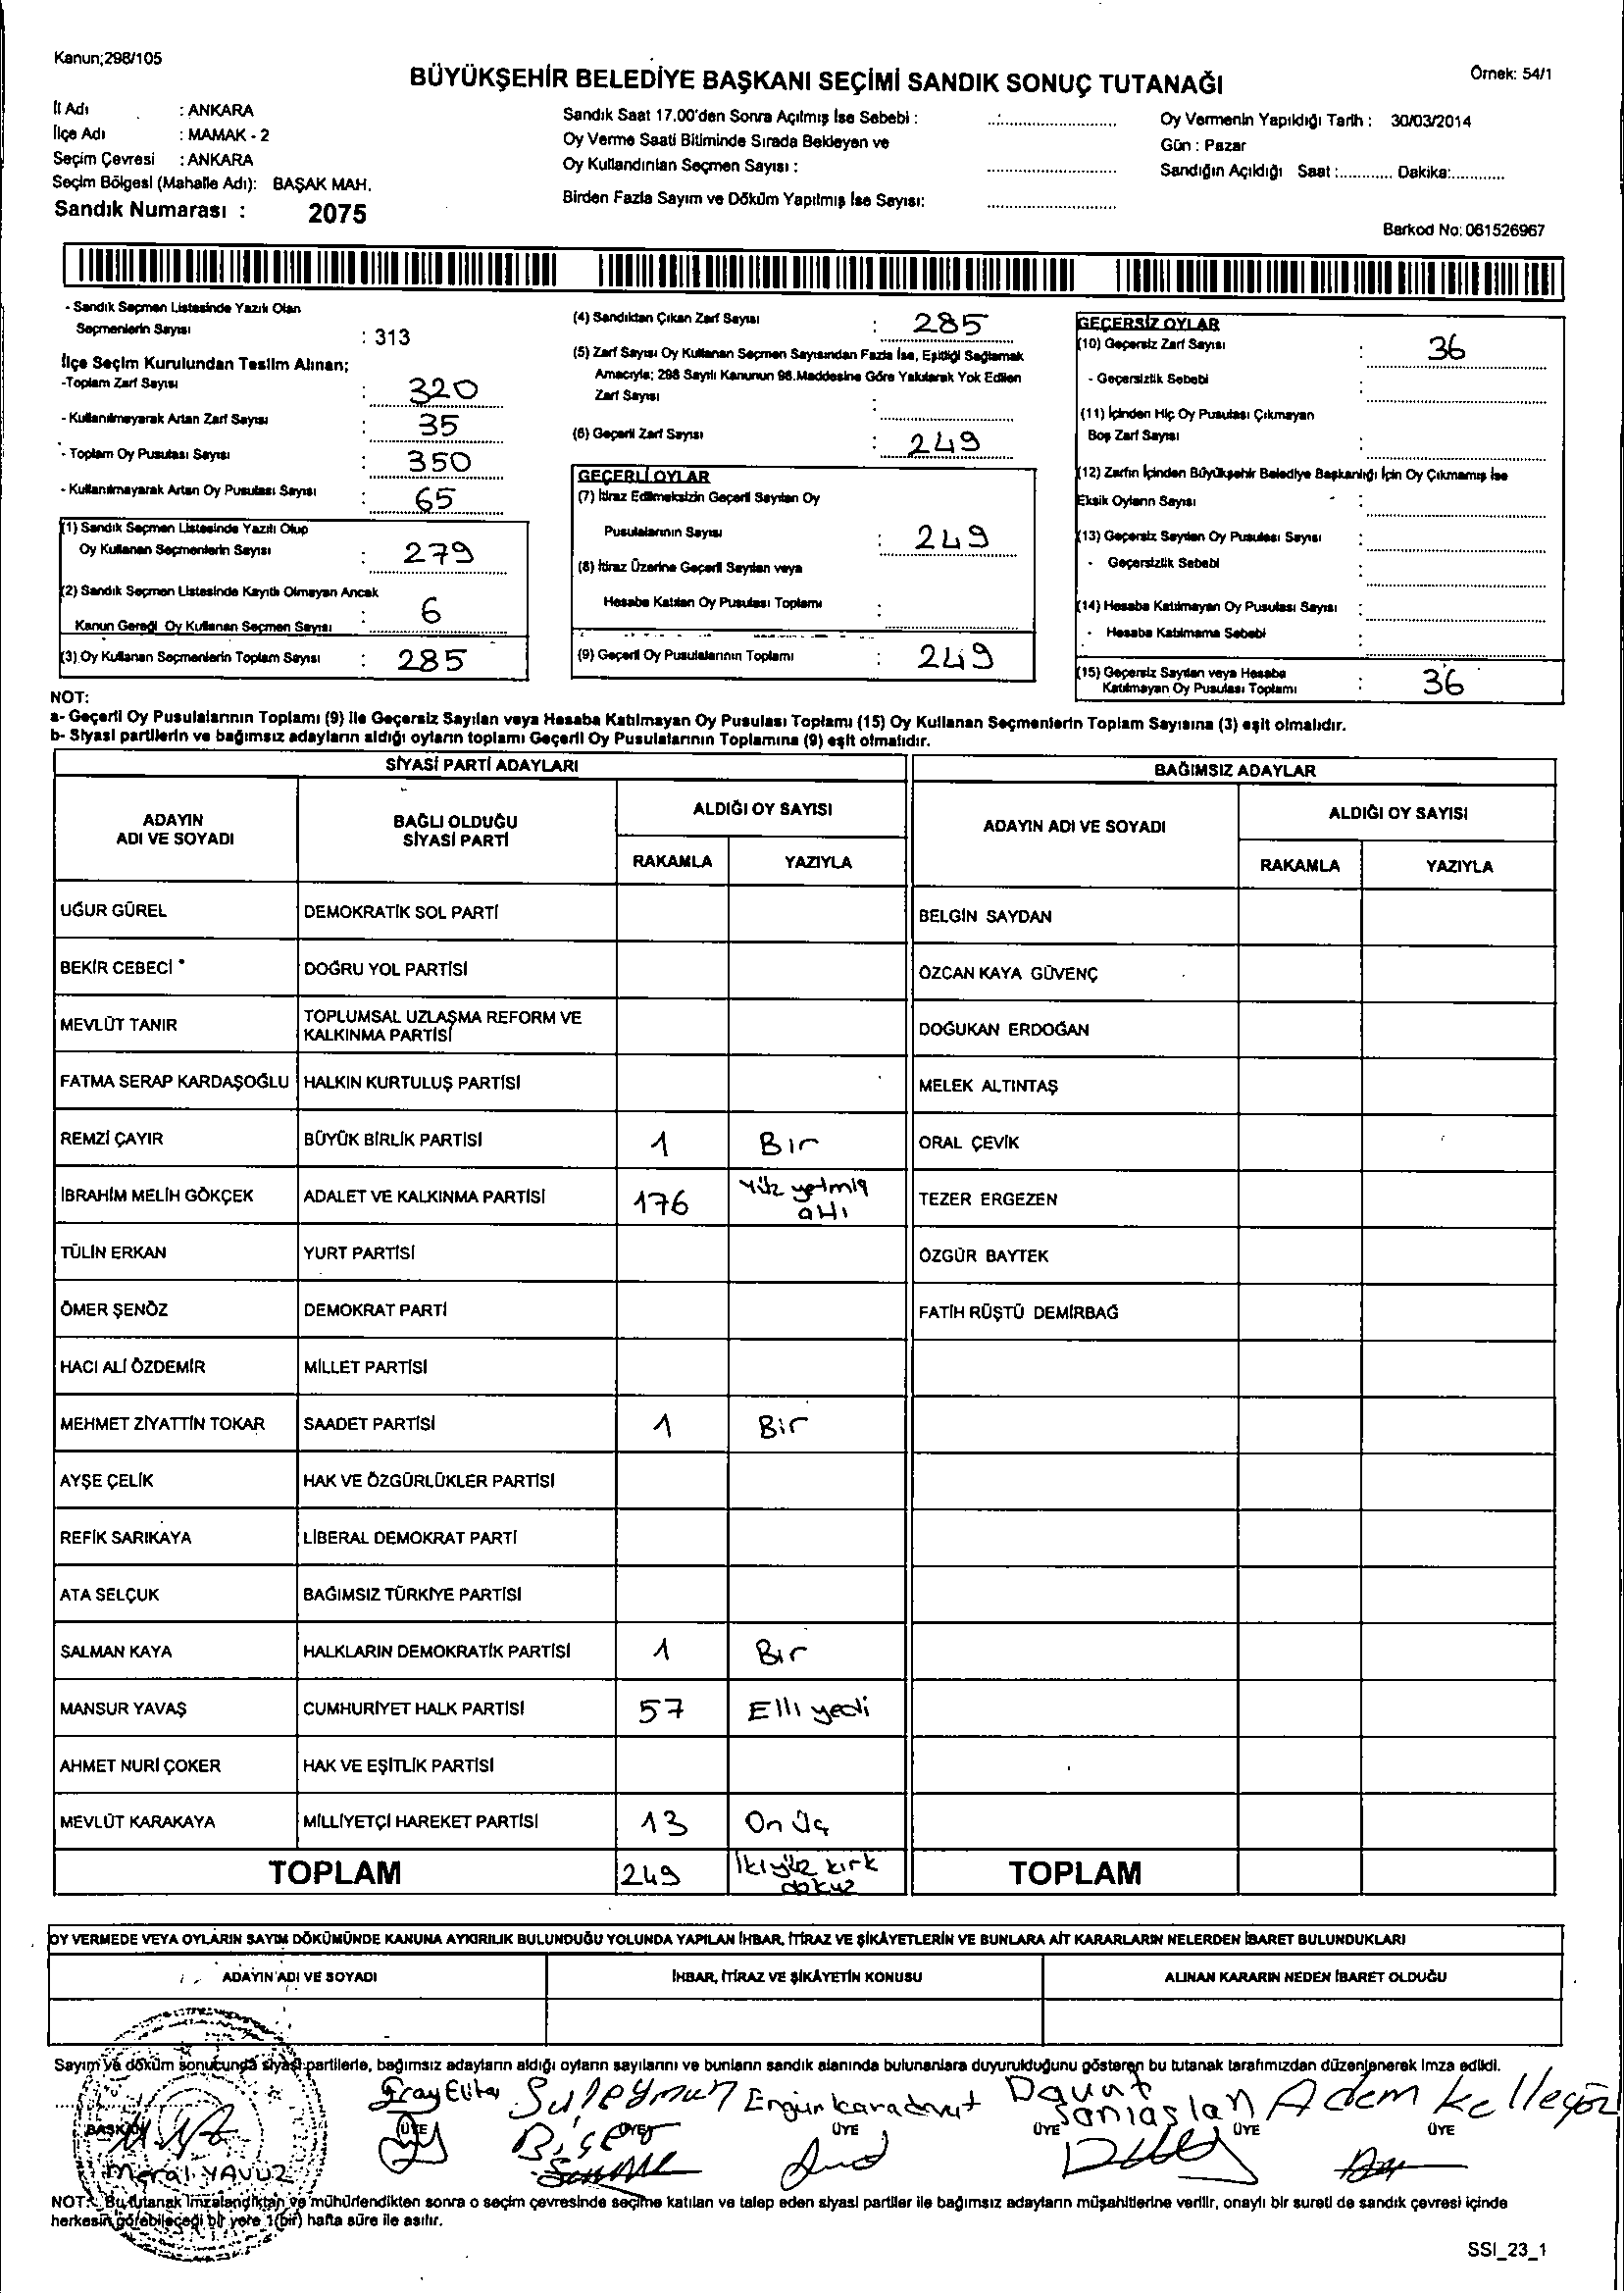 Kanun;298/105
BÜYÜKŞEHİR BELEDİYE BAŞKANI SEÇİMİ SANDIK SONUÇ TUTANAĞI
Örnek: 54/1
İl Adı : ANKARA
İlçe Adı : MAMAK - 2
Seçim Çevresi : ANKARA
Seçim Bölgesi (Mahalle Adı): BAŞAK MAH.
Sandık Numarası : 2075
Sandık Saat 17.00'den Sonra Açılmış İse Sebebi :
Oy Verme Saati Bitiminde Sırada Bekleyen ve
Oy Kullandırılan Seçmen Sayısı :
Birden Fazla Sayım ve Döküm Yapılmış İse Sayısı:
Oy Vermenin Yapıldığı Tarih : 30/03/2014
Gün : Pazar
Sandığın Açıldığı Saat :............ Dakika:............
Barkod No: 061526967
- Sandık Seçmen Listesinde Yazılı Olan
Seçmenlerin Sayısı : 313
İlçe Seçim Kurulundan Teslim Alınan;
-Toplam Zarf Sayısı : 320
- Kullanılmayarak Artan Zarf Sayısı : 35
- Toplam Oy Pusulası Sayısı : 350
- Kullanılmayarak Artan Oy Pusulası Sayısı : 65
(1) Sandık Seçmen Listesinde Yazılı Olup
Oy Kullanan Seçmenlerin Sayısı : 279
(2) Sandık Seçmen Listesinde Kayıtlı Olmayan Ancak
Kanun Gereği Oy Kullanan Seçmen Sayısı : 6
(3) Oy Kullanan Seçmenlerin Toplam Sayısı : 285
(4) Sandıktan Çıkan Zarf Sayısı : 285
(5) Zarf Sayısı Oy Kullanan Seçmen Sayısından Fazla İse, Eşitliği Sağlamak
Amacıyla; 298 Sayılı Kanunun 98.Maddesine Göre Yakılarak Yok Edilen
Zarf Sayısı :
(6) Geçerli Zarf Sayısı : 249
GEÇERLİ OYLAR
(7) İtiraz Edilmeksizin Geçerli Sayılan Oy
Pusulalarının Sayısı : 249
(8) İtiraz Üzerine Geçerli Sayılan veya
Hesaba Katılan Oy Pusulası Toplamı :
(9) Geçerli Oy Pusulalarının Toplamı : 249
GEÇERSİZ OYLAR
(10) Geçersiz Zarf Sayısı : 36
- Geçersizlik Sebebi :
(11) İçinden Hiç Oy Pusulası Çıkmayan
Boş Zarf Sayısı :
(12) Zarfın İçinden Büyükşehir Belediye Başkanlığı İçin Oy Çıkmamış İse
Eksik Oyların Sayısı :
(13) Geçersiz Sayılan Oy Pusulası Sayısı :
- Geçersizlik Sebebi :
(14) Hesaba Katılmayan Oy Pusulası Sayısı :
- Hesaba Katılmama Sebebi :
(15) Geçersiz Sayılan veya Hesaba
Katılmayan Oy Pusulası Toplamı : 36
NOT:
a- Geçerli Oy Pusulalarının Toplamı (9) ile Geçersiz Sayılan veya Hesaba Katılmayan Oy Pusulası Toplamı (15) Oy Kullanan Seçmenlerin Toplam Sayısına (3) eşit olmalıdır.
b- Siyasi partilerin ve bağımsız adayların aldığı oyların toplamı Geçerli Oy Pusulalarının Toplamına (9) eşit olmalıdır.
SİYASİ PARTİ ADAYLARI
BAĞIMSIZ ADAYLAR
ADAYIN ADI VE SOYADI
BAĞLI OLDUĞU SİYASİ PARTİ
ALDIĞI OY SAYISI
RAKAMLA YAZIYLA
ADAYIN ADI VE SOYADI
ALDIĞI OY SAYISI
RAKAMLA YAZIYLA
UĞUR GÜREL DEMOKRATİK SOL PARTİ BELGİN SAYDAN
BEKİR CEBECİ DOĞRU YOL PARTİSİ ÖZCAN KAYA GÜVENÇ
MEVLÜT TANIR TOPLUMSAL UZLAŞMA REFORM VE KALKINMA PARTİSİ DOĞUKAN ERDOĞAN
FATMA SERAP KARDAŞOĞLU HALKIN KURTULUŞ PARTİSİ MELEK ALTINTAŞ
REMZİ ÇAYIR BÜYÜK BİRLİK PARTİSİ 1 Bır ORAL ÇEVİK
İBRAHİM MELİH GÖKÇEK ADALET VE KALKINMA PARTİSİ 176 Yüz yetmiş altı TEZER ERGEZEN
TÜLİN ERKAN YURT PARTİSİ ÖZGÜR BAYTEK
ÖMER ŞENÖZ DEMOKRAT PARTİ FATİH RÜŞTÜ DEMİRBAĞ
HACI ALİ ÖZDEMİR MİLLET PARTİSİ
MEHMET ZİYATTİN TOKAR SAADET PARTİSİ 1 Bir
AYŞE ÇELİK HAK VE ÖZGÜRLÜKLER PARTİSİ
REFİK SARIKAYA LİBERAL DEMOKRAT PARTİ
ATA SELÇUK BAĞIMSIZ TÜRKİYE PARTİSİ
SALMAN KAYA HALKLARIN DEMOKRATİK PARTİSİ 1 Bır
MANSUR YAVAŞ CUMHURİYET HALK PARTİSİ 57 Ellı yedi
AHMET NURİ ÇOKER HAK VE EŞİTLİK PARTİSİ
MEVLÜT KARAKAYA MİLLİYETÇİ HAREKET PARTİSİ 13 On üç
TOPLAM 249 İkiyüz kırk dokuz TOPLAM
OY VERMEDE VEYA OYLARIN SAYIM DÖKÜMÜNDE KANUNA AYKIRILIK BULUNDUĞU YOLUNDA YAPILAN İHBAR, İTİRAZ VE ŞİKÂYETLERİN VE BUNLARA AİT KARARLARIN NELERDEN İBARET BULUNDUKLARI
ADAYIN ADI VE SOYADI İHBAR, İTİRAZ VE ŞİKÂYETİN KONUSU ALINAN KARARIN NEDEN İBARET OLDUĞU
Sayım ve döküm sonucunda siyasi partilerle, bağımsız adayların aldığı oyların sayılarını ve bunların sandık alanında bulunanlara duyurulduğunu gösteren bu tutanak tarafımızdan düzenlenerek imza edildi.
Süleyman Engin Karadavut Davut Sarıaslan Adem Kellegöz
BAŞKAN ÜYE ÜYE ÜYE ÜYE ÜYE ÜYE
Meral YAVUZ
NOT: Bu tutanak imzalandıktan ve mühürlendikten sonra o seçim çevresinde seçime katılan ve talep eden siyasi partiler ile bağımsız adayların müşahitlerine verilir, onaylı bir sureti de sandık çevresi içinde
herkesin görebileceği bir yere 1(bir) hafta süre ile asılır.
SSI_23_1